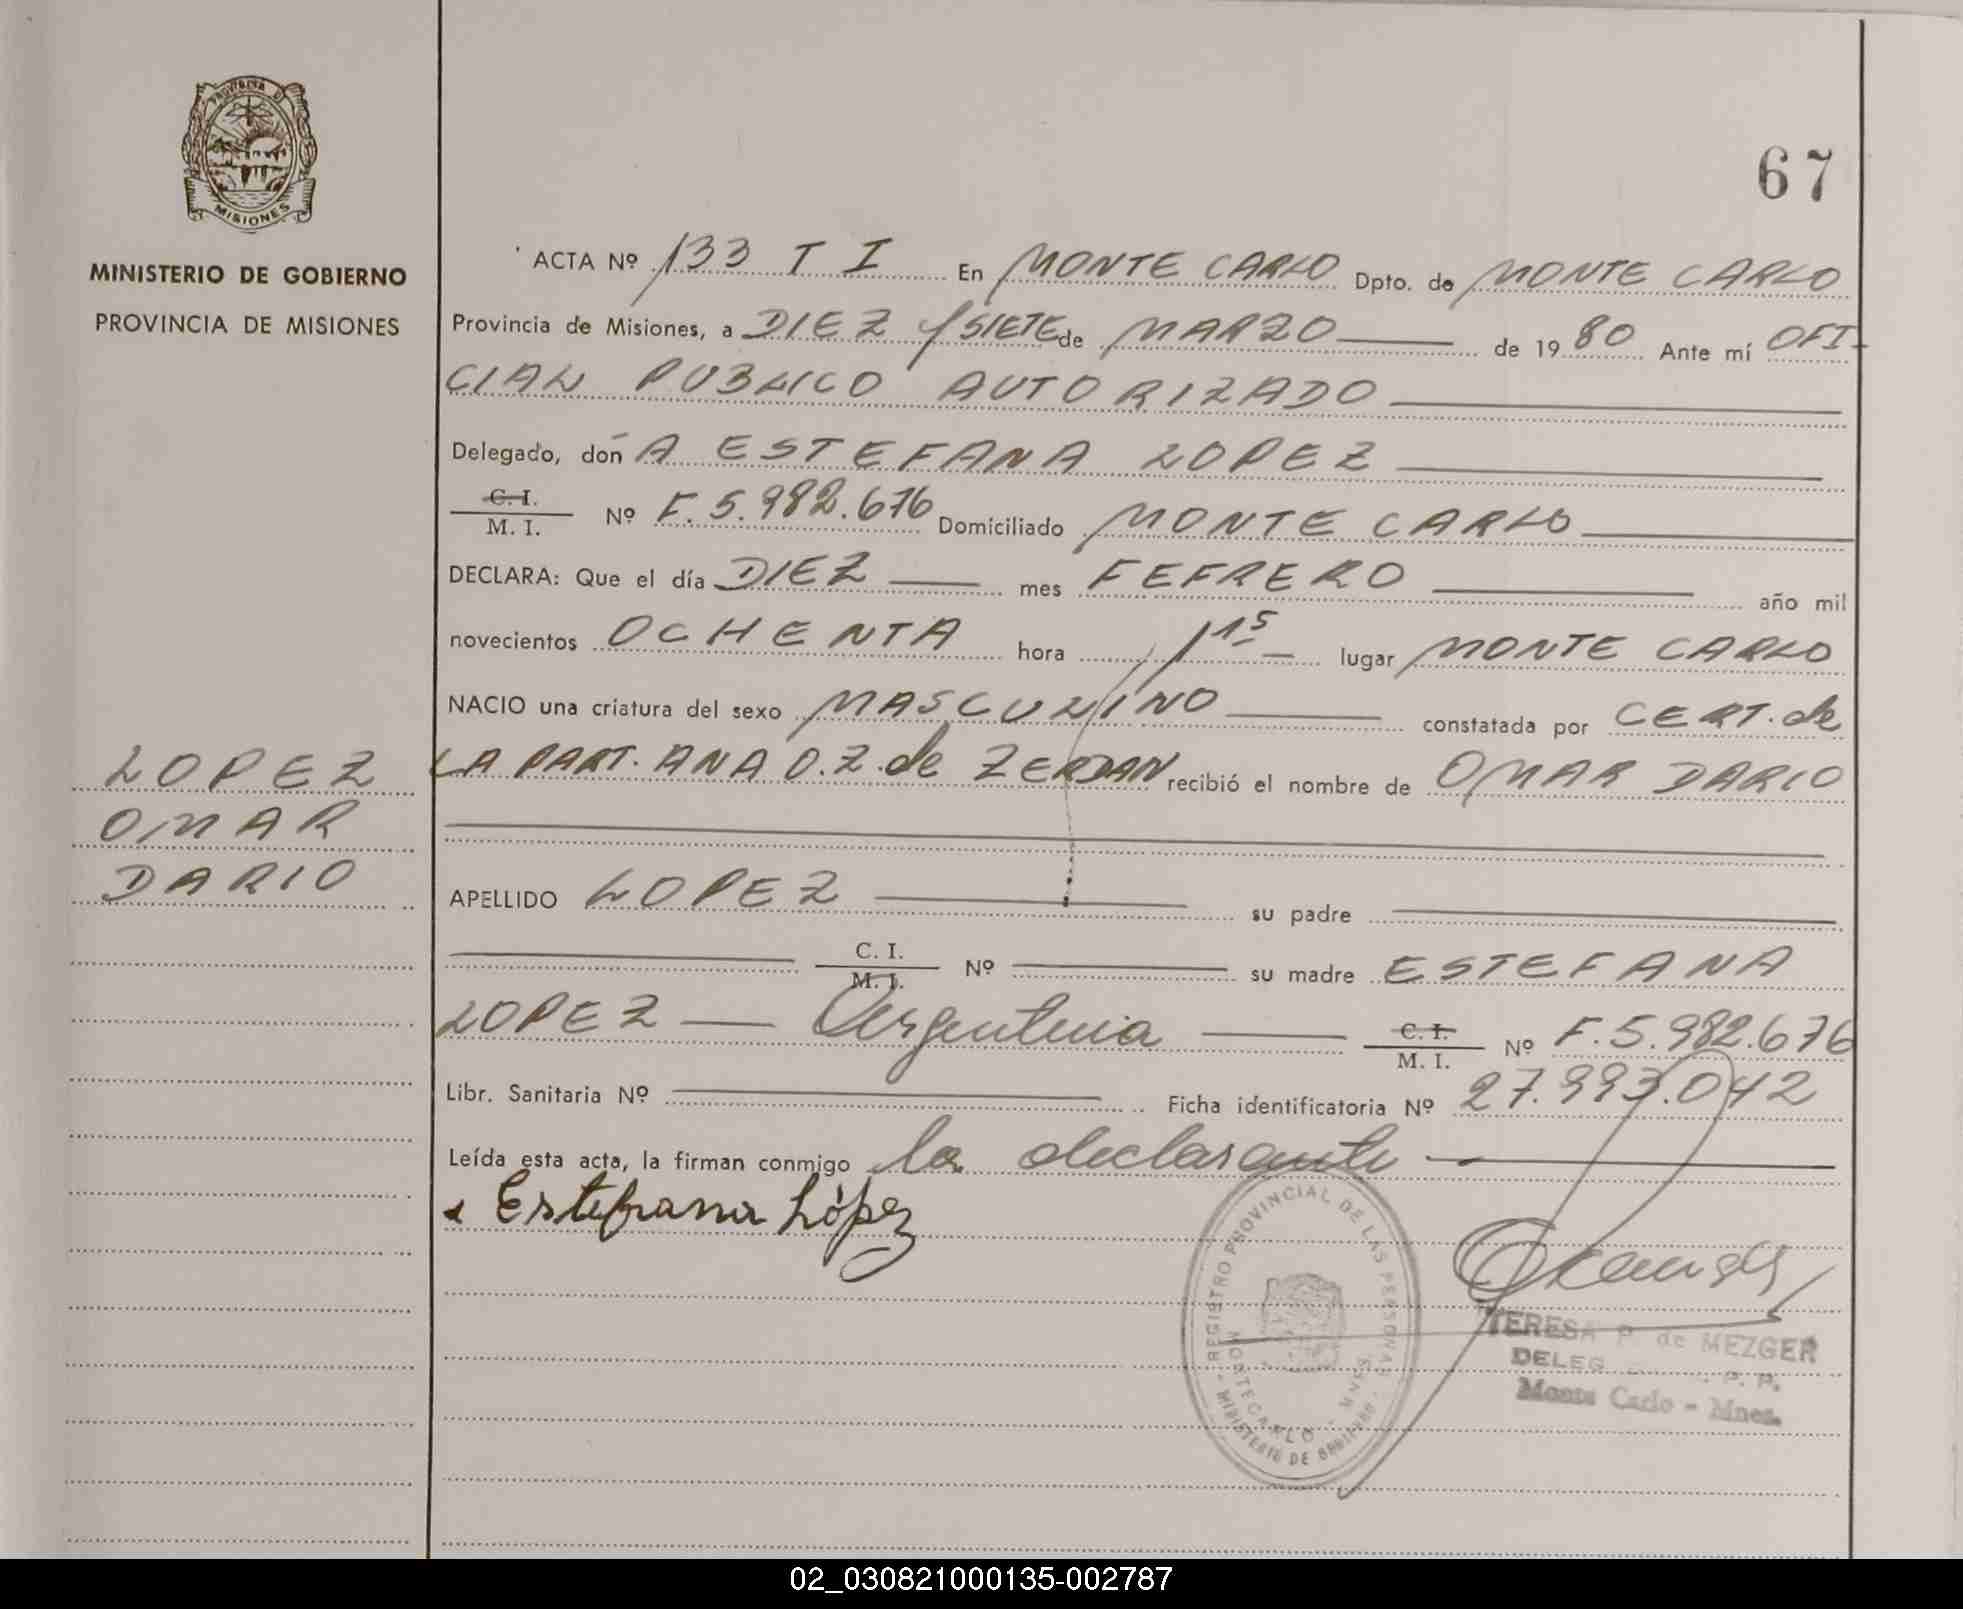 PROVINCIA DE
MISIONES
MINISTERIO DE GOBIERNO
PROVINCIA DE MISIONES
67
ACTA Nº 133 T I En MONTE CARLO Dpto. de MONTE CARLO
Provincia de Misiones, a DIEZ y SIETE de MARZO de 1980 Ante mí OFI-
CIAL PUBLICO AUTORIZADO
Delegado, don A ESTEFANA LOPEZ
C. I.
M. I. Nº F. 5.982.676 Domiciliado MONTE CARLO
DECLARA: Que el día DIEZ mes FEFRERO año mil
novecientos OCHENTA hora 1 15 lugar MONTE CARLO
NACIO una criatura del sexo MASCULINO constatada por CERT. de
LA PART. ANA O. Z. de ZERDAN recibió el nombre de OMAR DARIO
LOPEZ
OMAR
DARIO
APELLIDO LOPEZ su padre
C. I.
M. I. Nº su madre ESTEFANA
LOPEZ Argentina C. I.
M. I. Nº F. 5.982.676
Libr. Sanitaria Nº Ficha identificatoria Nº 27.993.042
Leída esta acta, la firman conmigo la declarante
Estefana López
REGISTRO PROVINCIAL DE LAS PERSONAS
MONTECARLO - MNES.
MINISTERIO DE GOBIERNO
TERESA P. de MEZGER
DELEG P. P.
Monte Carlo - Mnes.
02_030821000135-002787